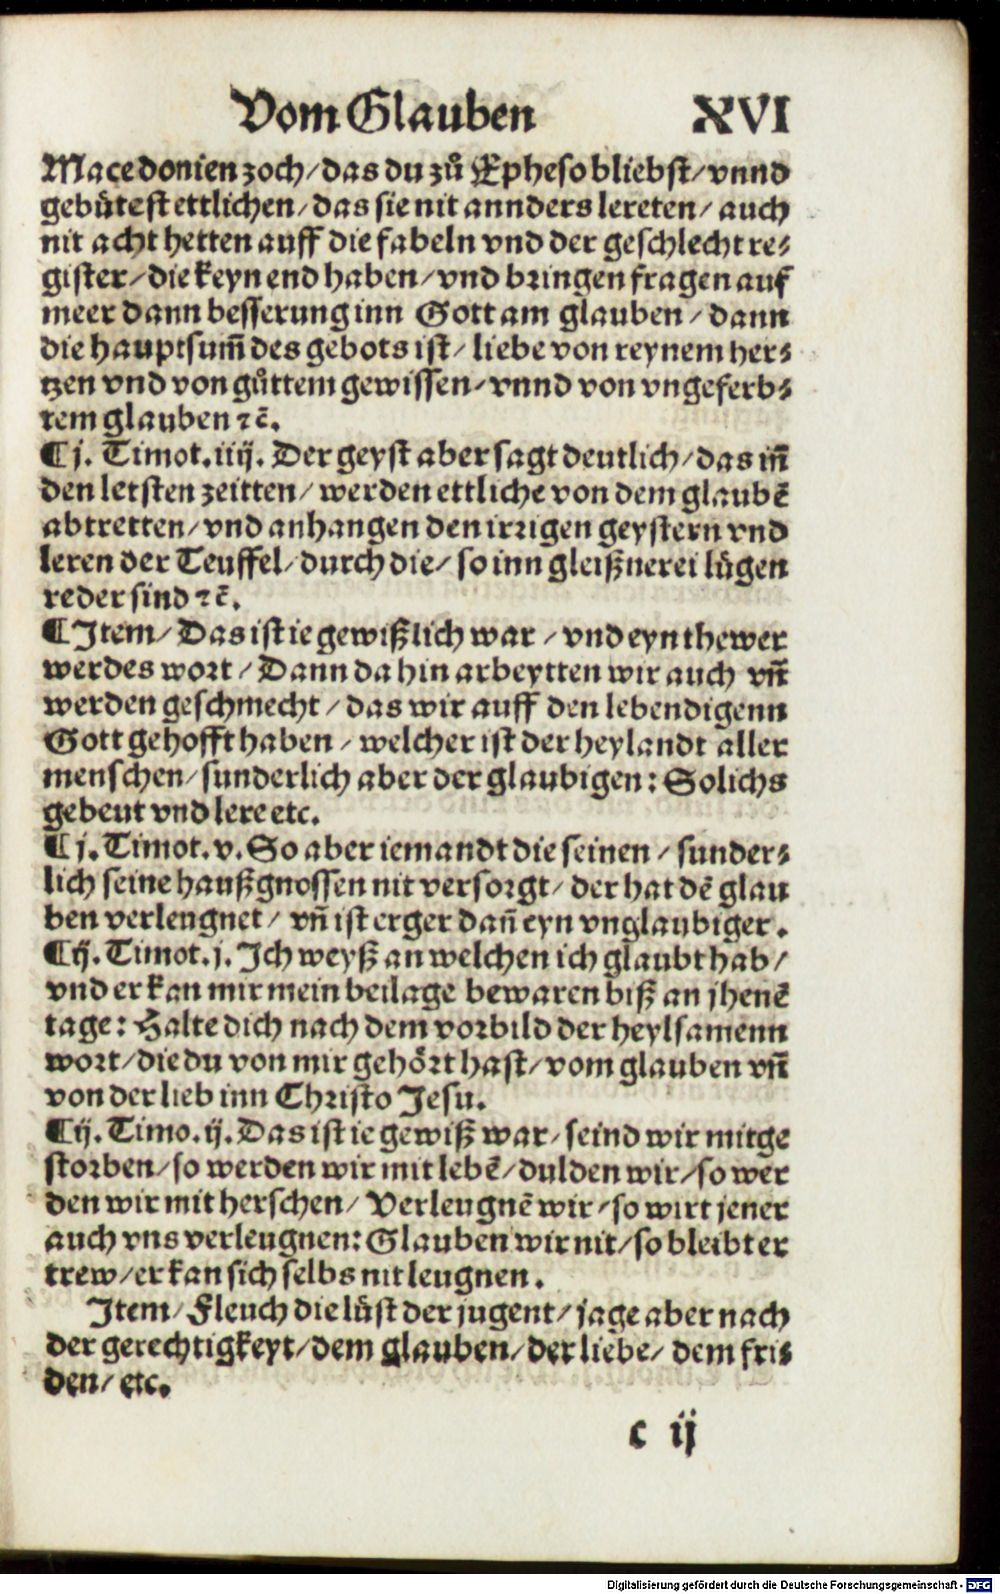 Vom Glauben XVI
Macedonien zoch/ das du zů Epheso bliebst/ vnnd
gebütest ettlichen/ das sie nit annders lereten/ auch
nit acht hetten auff die fabeln vnd der geschlecht re⸗
gister/ die keyn end haben/ vnd bringen fragen auf
meer dann besserung inn Gott am glauben/ dann
die hauptsum̄ des gebots ist/ liebe von reynem her⸗
tzen vnd von gůttem gewissen/ vnnd von vngeferb⸗
tem glauben ⁊c̄.
¶ j. Timot. iiij. Der geyst aber sagt deutlich/ das in̄
den letsten zeitten/ werden ettliche von dem glaubē
abtretten/ vnd anhangen den irrigen geystern vnd
leren der Teuffel/ durch die/ so inn gleißnerei lügen
reder sind ⁊c̄.
¶ Item/ Das ist ie gewißlich war/ vnd eyn thewer
werdes wort/ Dann da hin arbeytten wir auch vn̄
werden geschmecht/ das wir auff den lebendigenn
Gott gehofft haben/ welcher ist der heylandt aller
menschen/ sunderlich aber der glaubigen: Solichs
gebeut vnd lere etc.
¶ j. Timot. v. So aber iemandt die seinen/ sunder⸗
lich seine haußgnossen nit versorgt/ der hat dē glau
ben verleugnet/ vn̄ ist erger dan̄ eyn vnglaubiger.
¶ ij. Timot. j. Ich weyß an welchen ich glaubt hab/
vnd er kan mir mein beilage bewaren biß an jhenē
tage: Halte dich nach dem vorbild der heylsamenn
wort/ die du von mir gehört hast/ vom glauben vn̄
von der lieb inn Christo Jesu.
¶ ij. Timo. ij. Das ist ie gewiß war/ seind wir mitge
storben/ so werden wir mit lebē/ dulden wir/ so wer
den wir mit herschen/ Verleugnē wir/ so wirt jener
auch vns verleugnen: Glauben wir nit/ so bleibt er
trew/ er kan sich selbs nit leugnen.
Item/ Fleuch die lüst der jugent/ jage aber nach
der gerechtigkeyt/ dem glauben/ der liebe/ dem fri⸗
den/ etc.
c ij
Digitalisierung gefördert durch die Deutsche Forschungsgemeinschaft - DFG